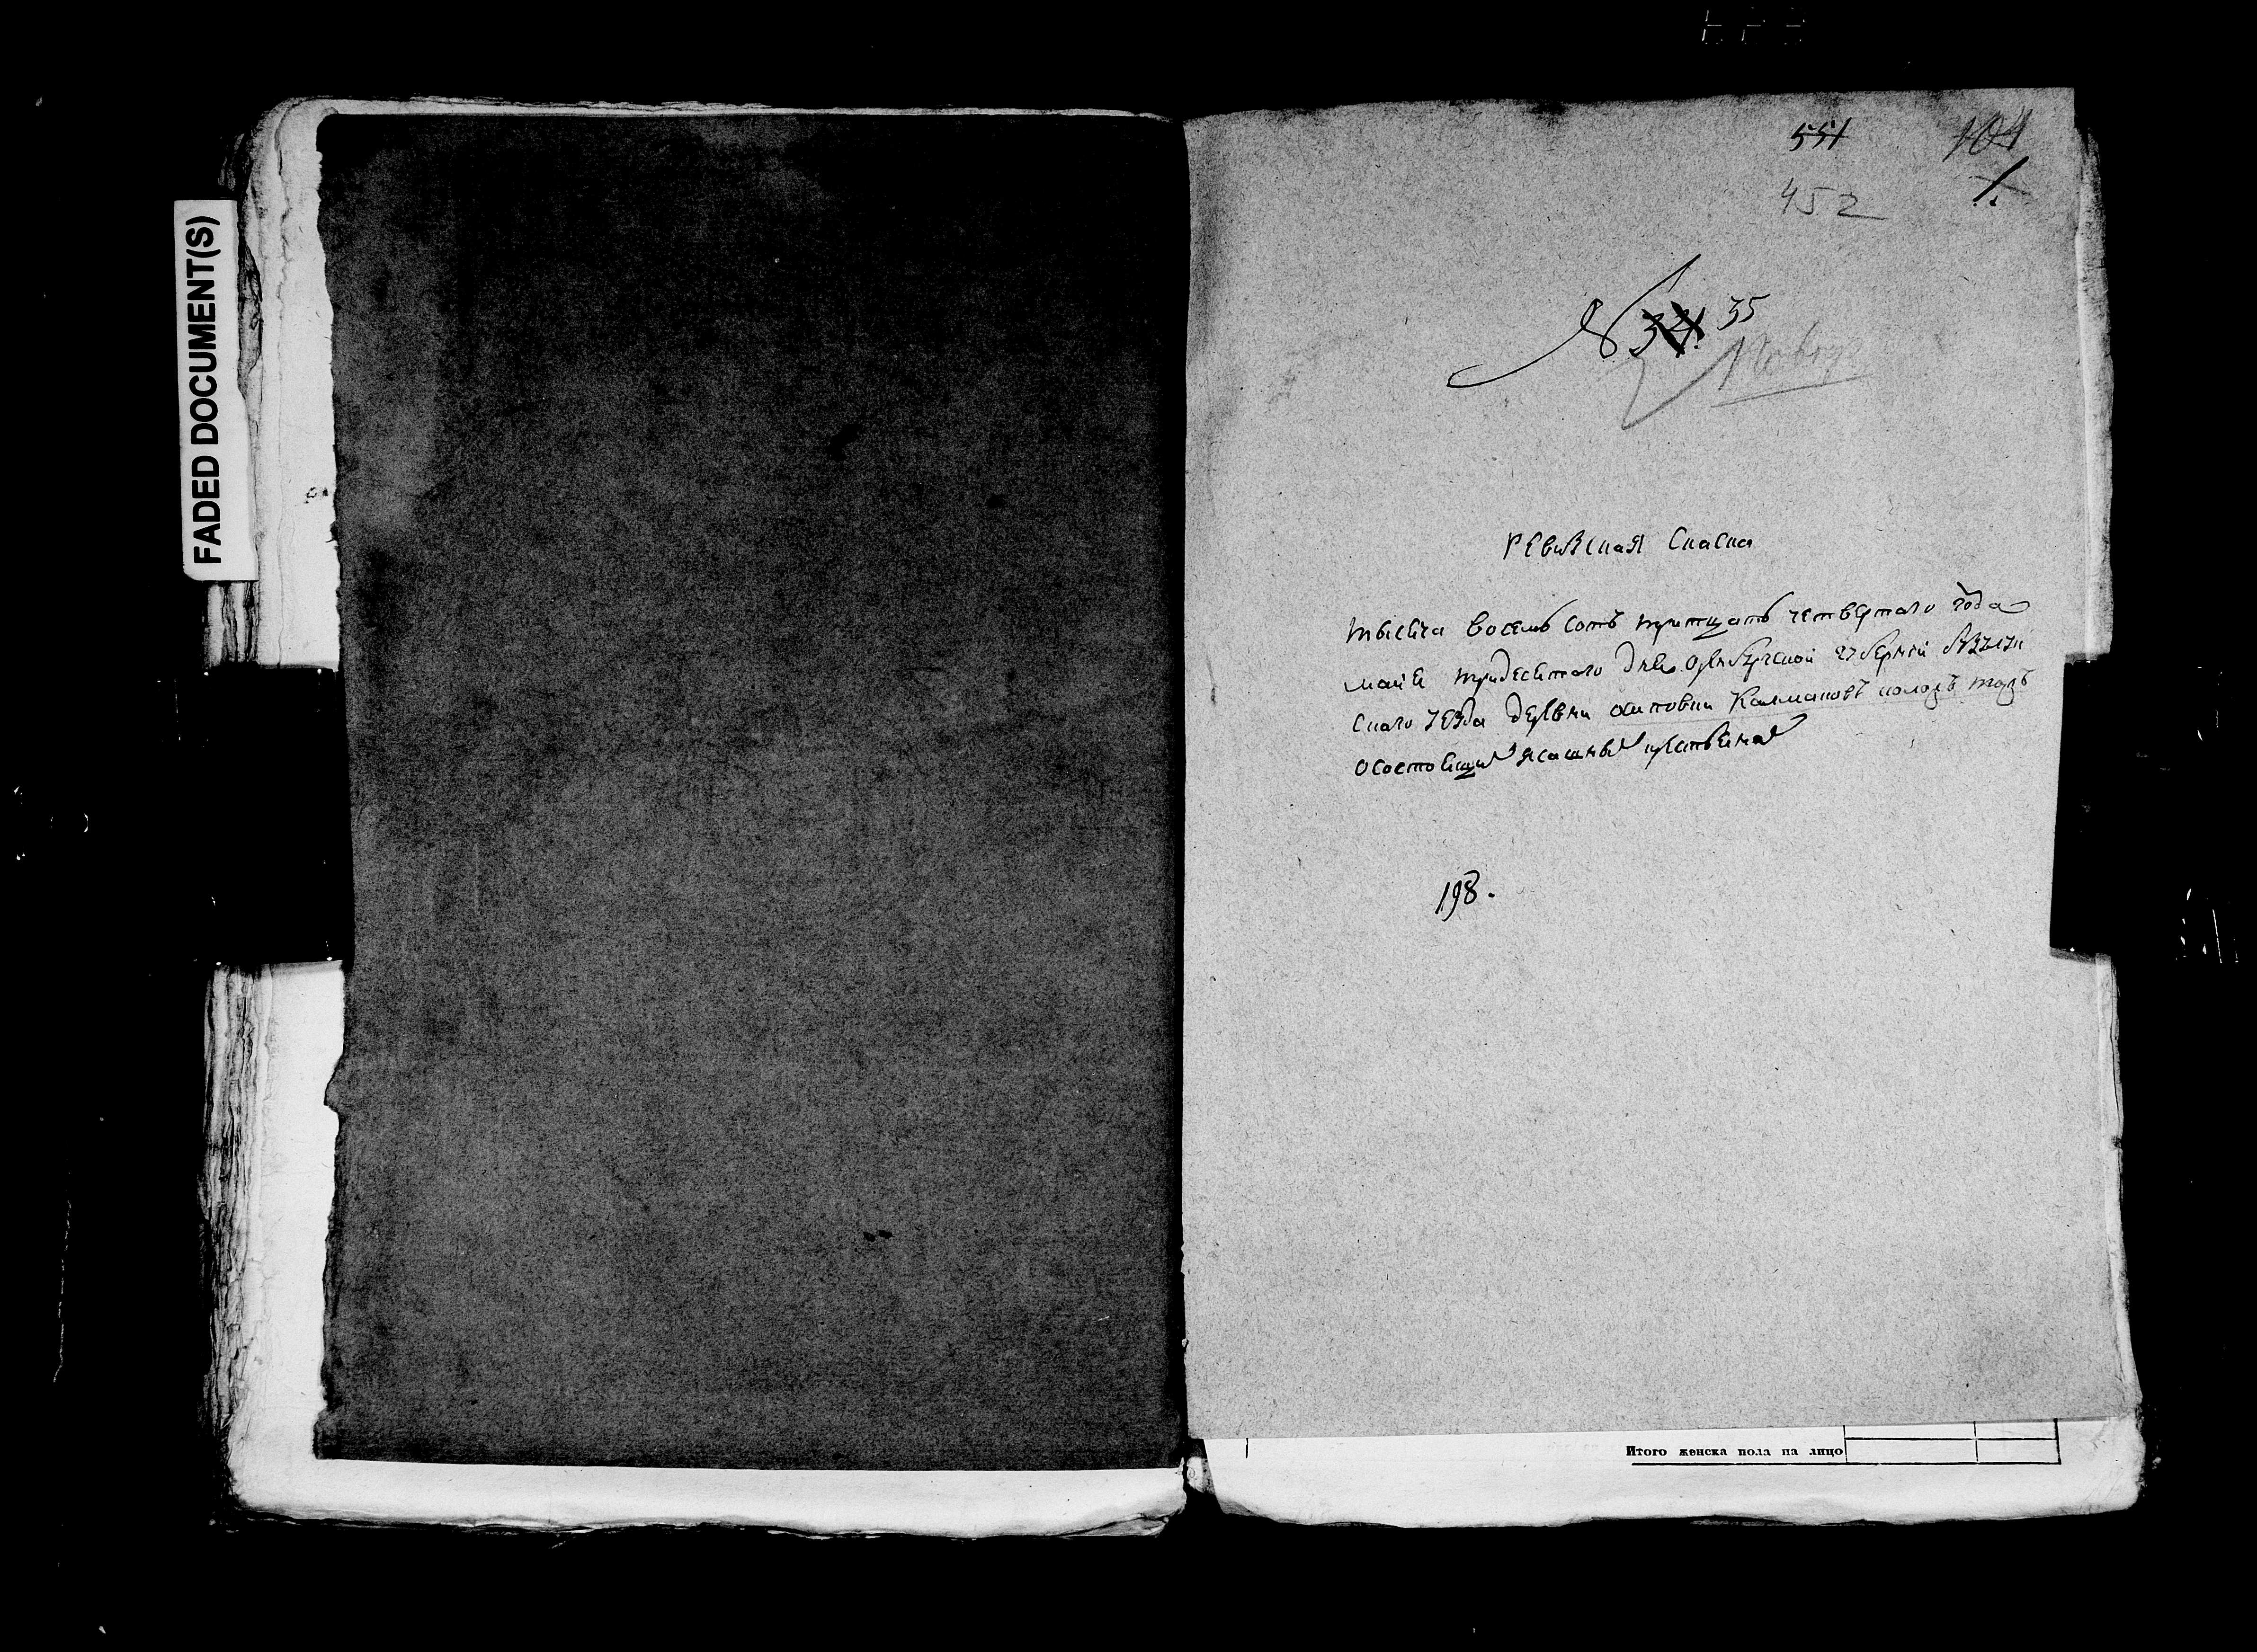 FADED DOCUMENT(S)
551 104
452 1.
N 34. 35
Ревизская Скаска
тысеча восемь сотъ тритцать четвертаго года
маие тридесетаго дне Оренбурской губернии
скаго уезда деревни Калмаковъ колодъ тожъ
о состоещихъ ясашныхъ крестьенахъ
198.
Итого женска пола на лицо